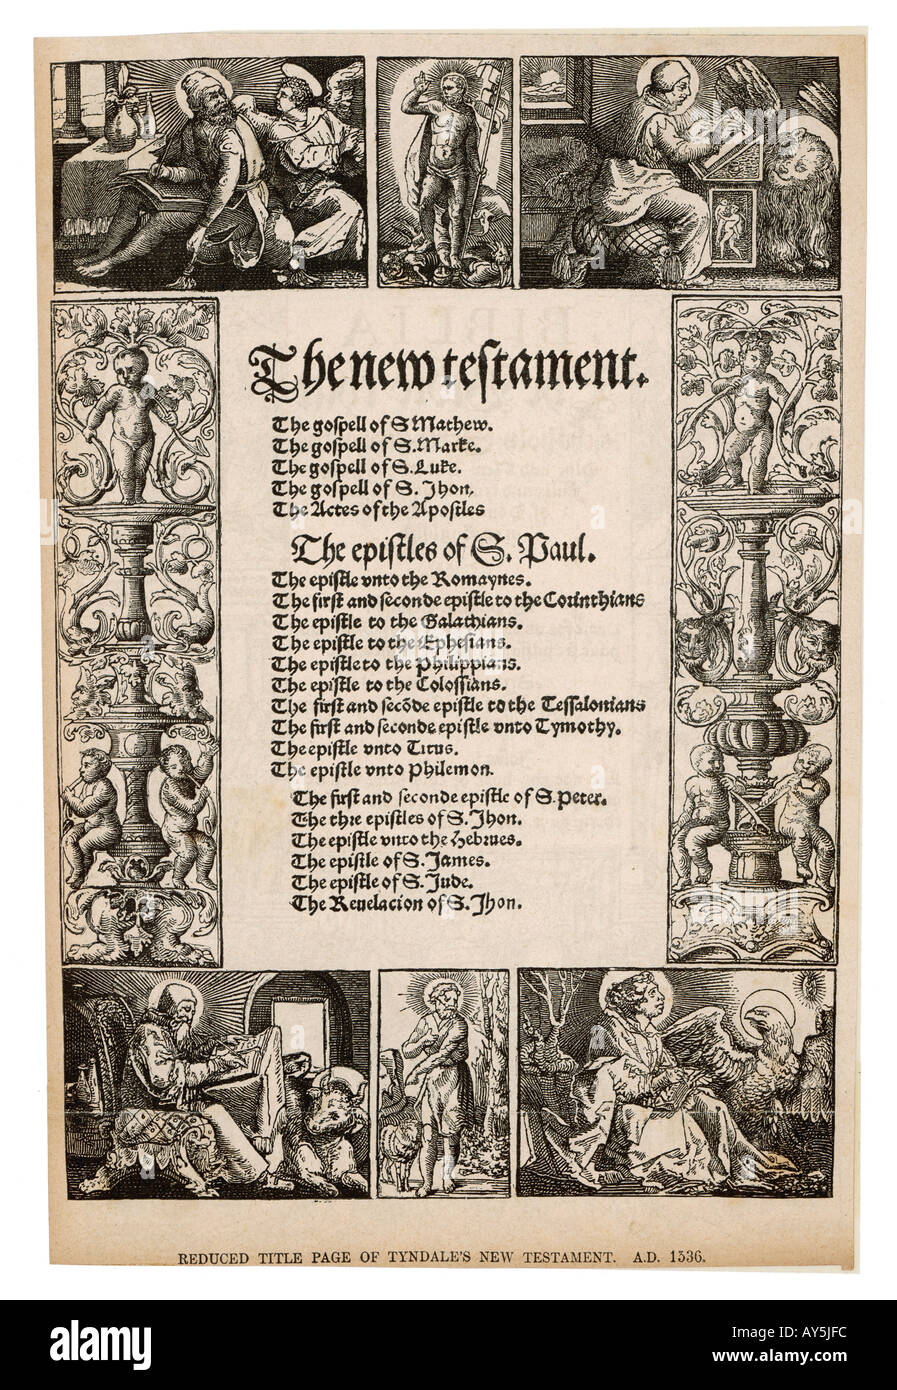 The new testament.
The gospell of S Mathew.
The gospell of S. Marke.
The gospell of S. Luke.
The gospell of S. Jhon.
The Actes of the Apostles
The epistles of S. Paul.
The epistle vnto the Romaynes.
The first and seconde epistle to the Corinthians
The epistle to the Galathians.
The epistle to the Ephesians.
The epistle to the Philippians.
The epistle to the Colossians.
The first and secōde epistle to the Tessalonians
The first and seconde epistle vnto Tymothy.
The epistle vnto Titus.
The epistle vnto Philemon.
The first and seconde epistle of S. Peter.
The thre epistles of S. Jhon.
The epistle vnto the Hebrues.
The epistle of S. James.
The epistle of S. Jude.
The Reuelacion of S. Jhon.
REDUCED TITLE PAGE OF TYNDALE'S NEW TESTAMENT. A.D. 1536.
alamy
Image ID: AY5JFC
www.alamy.com